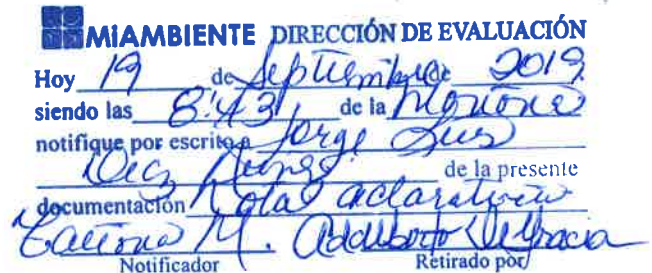 MiAMBIENTE DIRECCIÓN DE EVALUACIÓN
Hoy 19 de Septiembre de 2019
siendo las 8:43 de la Mañana
notifique por escrito a Jorge Luis
de la presente
documentación Nota aclaratoria
M. Adalberto De Gracia
Notificador Retirado por